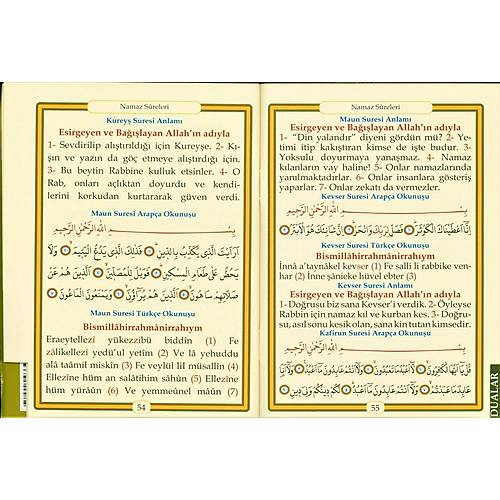 Namaz Sûreleri
Kureyş Suresi Anlamı
Esirgeyen ve Bağışlayan Allah'ın adıyla
1- Sevdirilip alıştırıldığı için Kureyşe. 2- Kı-
şın ve yazın da göç etmeye alıştırdığı için.
3- Bu beytin Rabbine kulluk etsinler. 4- O
Rab, onları açlıktan doyurdu ve kendi-
lerini korkudan kurtararak güven verdi.
Maun Suresi Arapça Okunuşu
بِسْــــــمِ اللهِ الرَّحْمٰنِ الرَّحِيمِ
اَرَاَيْتَ الَّذِي يُكَذِّبُ بِالدِّينِ فَذٰلِكَ الَّذِي يَدُعُّ الْيَتِيمَ وَلَا
يَحُضُّ عَلٰى طَعَامِ الْمِسْكِينِ فَوَيْلٌ لِلْمُصَلِّينَ اَلَّذِينَ هُمْ عَنْ
صَلَاتِهِمْ سَاهُونَ اَلَّذِينَ هُمْ يُرَاؤُنَ وَيَمْنَعُونَ الْمَاعُونَ
Maun Suresi Türkçe Okunuşu
Bismillâhirrahmânirrahıym
Eraeytellezî yükezzibü biddîn (1) Fe
zâlikellezî yedü'ul yetîm (2) Ve lâ yehuddu
alâ taâmil miskîn (3) Fe veylül lil müsallîn (4)
Ellezîne hüm an salâtihim sâhûn (5) Ellezîne
hüm yürâûn (6) Ve yemmeûnel mâûn (7)
54
Namaz Sûreleri
Maun Suresi Anlamı
Esirgeyen ve Bağışlayan Allah'ın adıyla
1- "Din yalandır" diyeni gördün mü? 2- Ye-
timi itip kakıştıran kimse de işte budur. 3-
Yoksulu doyurmaya yanaşmaz. 4- Namaz
kılanların vay haline! 5- Onlar namazlarında
yanılmaktadırlar. 6- Onlar insanlara gösteriş
yaparlar. 7- Onlar zekatı da vermezler.
Kevser Suresi Arapça Okunuşu
بِسْــــــمِ اللهِ الرَّحْمٰنِ الرَّحِيمِ
اِنَّا اَعْطَيْنَاكَ الْكَوْثَرَ فَصَلِّ لِرَبِّكَ وَانْحَرْ اِنَّ شَانِئَكَ هُوَ الْاَبْتَرُ
Kevser Suresi Türkçe Okunuşu
Bismillâhirrahmânirrahıym
İnnâ a'taynâkel kevser (1) Fe salli li rabbike ven-
har (2) İnne şânieke hüvel ebter (3)
Kevser Suresi Anlamı
Esirgeyen ve Bağışlayan Allah'ın adıyla
1- Doğrusu biz sana Kevser'i verdik. 2- Öyleyse
Rabbin için namaz kıl ve kurban kes. 3- Doğru-
su, asıl sonu kesik olan, sana kin tutan kimsedir.
Kafirun Suresi Arapça Okunuşu
بِسْــــــمِ اللهِ الرَّحْمٰنِ الرَّحِيمِ
قُلْ يَا اَيُّهَا الْكَافِرُونَ لَا اَعْبُدُ مَا تَعْبُدُونَ وَلَا اَنْتُمْ عَابِدُونَ مَا اَعْبُدُ وَلَا اَنَا
عَابِدٌ مَا عَبَدْتُمْ وَلَا اَنْتُمْ عَابِدُونَ مَا اَعْبُدُ لَكُمْ دِينُكُمْ وَلِيَ دِينِ
55
DUALAR